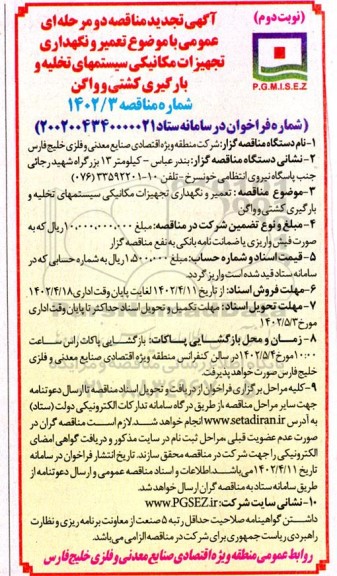 (نوبت دوم)
P.G.M.I.S.E.Z
آگهی تجدید مناقصه دو مرحله ای
عمومی با موضوع تعمیر و نگهداری
تجهیزات مکانیکی سیستمهای تخلیه و
بارگیری کشتی و واگن
شماره مناقصه ۱۴۰۲/۳
(شماره فراخوان در سامانه ستاد ۲۰۰۲۰۰۴۳۴۰۰۰۰۰۲۱)
۱- نام دستگاه مناقصه گزار: شرکت منطقه ویژه اقتصادی صنایع معدنی و فلزی خلیج فارس
۲- نشانی دستگاه مناقصه گزار: بندرعباس - کیلومتر ۱۳ بزرگراه شهید رجائی
جنب پاسگاه نیروی انتظامی خونسرخ - تلفن ۱۰-۳۳۵۹۲۲۰۱ (۰۷۶)
۳- موضوع مناقصه: تعمیر و نگهداری تجهیزات مکانیکی سیستمهای تخلیه و
بارگیری کشتی و واگن
۴- مبلغ و نوع تضمین شرکت در مناقصه: مبلغ ۱۰,۰۰۰,۰۰۰,۰۰۰ ریال که به
صورت فیش واریزی یا ضمانت نامه بانکی به نفع مناقصه گزار
۵- قیمت اسناد و شماره حساب: مبلغ ۱,۵۰۰,۰۰۰ ریال به شماره حسابی که در
سامانه ستاد قید شده است واریز گردد.
۶- مهلت فروش اسناد: از تاریخ ۱۴۰۲/۴/۱۱ لغایت پایان وقت اداری ۱۴۰۲/۴/۱۸
۷- مهلت تحویل اسناد: مهلت تکمیل و تحویل اسناد حداکثر تا پایان وقت اداری
مورخ ۱۴۰۲/۵/۳
۸- زمان و محل بازگشایی پاکات: بازگشایی پاکات راس ساعت
۱۰:۰۰ مورخ ۱۴۰۲/۵/۴ در سالن کنفرانس منطقه ویژه اقتصادی صنایع معدنی و فلزی
خلیج فارس صورت خواهد پذیرفت.
۹- کلیه مراحل برگزاری فراخوان از دریافت و تحویل اسناد مناقصه تا ارسال دعوتنامه
جهت سایر مراحل مناقصه از طریق درگاه سامانه تدارکات الکترونیکی دولت (ستاد)
به آدرس www.setadiran.ir انجام خواهد شد. لازم است مناقصه گران در
صورت عدم عضویت قبلی، مراحل ثبت نام در سایت مذکور و دریافت گواهی امضای
الکترونیکی را جهت شرکت در مناقصه محقق سازند. تاریخ انتشار فراخوان در سامانه
تاریخ ۱۴۰۲/۴/۱۱ می باشد اطلاعات و اسناد مناقصه عمومی و ارسال دعوتنامه از
طریق سامانه ستاد به مناقصه گران ارسال خواهد شد.
۱۰- نشانی سایت شرکت: www.PGSEZ.ir
داشتن گواهینامه صلاحیت حداقل رتبه ۵ صنعت از معاونت برنامه ریزی و نظارت
راهبردی ریاست جمهوری برای شرکت در مناقصه الزامی می باشد.
روابط عمومی منطقه ویژه اقتصادی صنایع معدنی و فلزی خلیج فارس